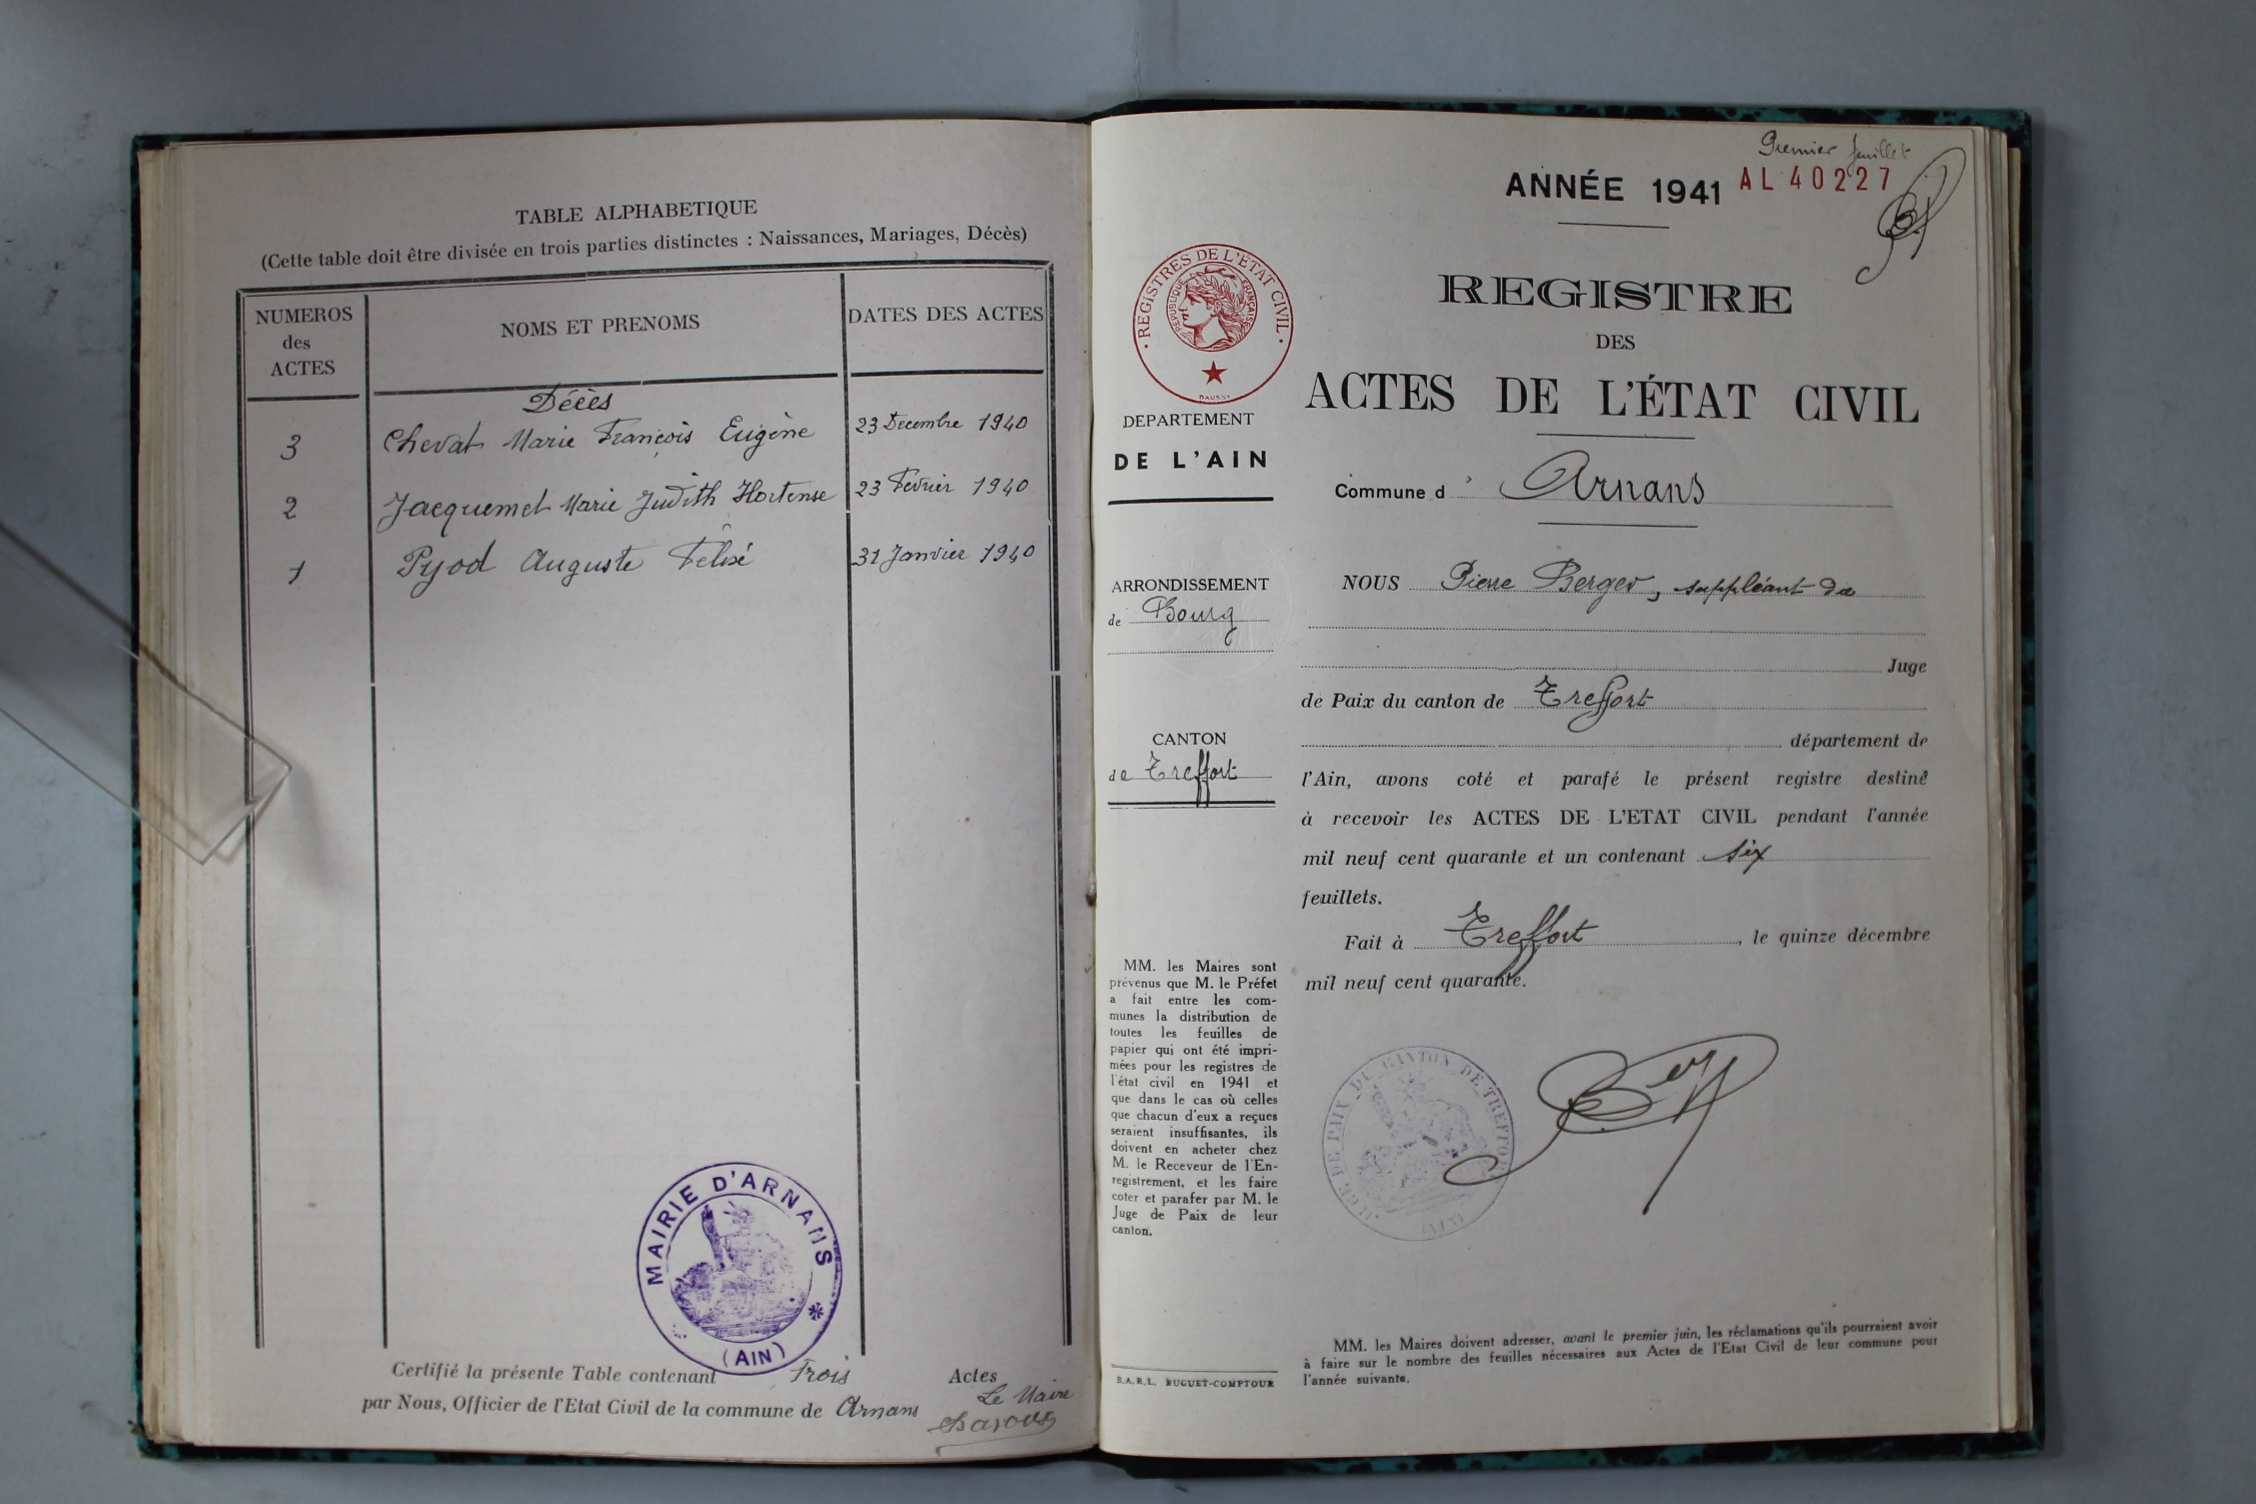 TABLE ALPHABETIQUE
(Cette table doit être divisée en trois parties distinctes : Naissances, Mariages, Décès)
NUMEROS des ACTES
NOMS ET PRENOMS
DATES DES ACTES
Décès
3 Chevat Marie François Eugène 23 Decembre 1940
2 Jacquemet Marie Judith Hortense 23 Fevrier 1940
1 Pyod Auguste 31 Janvier 1940
MAIRIE D'ARNANS
(AIN)
Certifié la présente Table contenant Trois Actes
par Nous, Officier de l'Etat Civil de la commune de Arnans
Le Maire
Premier feuillet
ANNÉE 1941 AL 40227
REGISTRES DE L'ETAT CIVIL
REPUBLIQUE FRANÇAISE
DEPARTEMENT
DE L'AIN
ARRONDISSEMENT
de Bourg
CANTON
de Treffort
MM. les Maires sont
prévenus que M. le Préfet
a fait entre les com-
munes la distribution de
toutes les feuilles de
papier qui ont été impri-
mées pour les registres de
l'état civil en 1941 et
que dans le cas où celles
que chacun d'eux a reçues
seraient insuffisantes, ils
doivent en acheter chez
M. le Receveur de l'En-
registrement, et les faire
coter et parafer par M. le
Juge de Paix de leur
canton.
S.A.R.L. RUGUET-COMPTOUR
REGISTRE
DES
ACTES DE L'ÉTAT CIVIL
Commune d' Arnans
NOUS Pierre Berger, suppléant de
Juge
de Paix du canton de Treffort
département de
l'Ain, avons coté et parafé le présent registre destiné
à recevoir les ACTES DE L'ETAT CIVIL pendant l'année
mil neuf cent quarante et un contenant six
feuillets.
Fait à Treffort, le quinze décembre
mil neuf cent quarante.
JUGE DE PAIX DU CANTON DE TREFFORT
(AIN)
MM. les Maires doivent adresser, avant le premier juin, les réclamations qu'ils pourraient avoir
à faire sur le nombre des feuilles nécessaires aux Actes de l'Etat Civil de leur commune pour
l'année suivante.